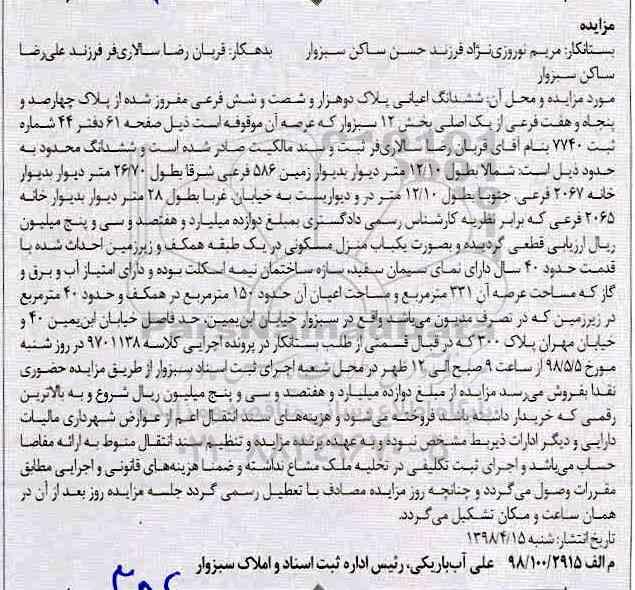 مزایده
بستانکار: مریم نوروزی‌نژاد فرزند حسن ساکن سبزوار بدهکار: قربان رضا سالاری‌فر فرزند علی‌رضا
ساکن سبزوار
مورد مزایده و محل آن: ششدانگ اعیانی پلاک دوهزار و شصت و شش فرعی مفروز شده از پلاک چهارصد و
پنجاه و هفت فرعی از یک اصلی بخش ۱۲ سبزوار که عرصه آن موقوفه است ذیل صفحه ۶۱ دفتر ۴۴ شماره
ثبت ۷۷۴۰ بنام آقای قربان رضا سالاری‌فر ثبت و سند مالکیت صادر شده است و ششدانگ محدود به
حدود ذیل است: شمالا بطول ۱۲/۱۰ متر دیوار بدیوار زمین ۵۸۶ فرعی شرقا بطول ۲۶/۷۰ متر دیوار بدیوار
خانه ۲۰۶۷ فرعی. جنوبا بطول ۱۲/۱۰ متر در و دیواریست به خیابان. غربا بطول ۲۸ متر دیوار بدیوار خانه
۲۰۶۵ فرعی که برابر نظریه کارشناس رسمی دادگستری بمبلغ دوازده میلیارد و هفتصد و سی و پنج میلیون
ریال ارزیابی قطعی گردیده و بصورت یکباب منزل مسکونی در یک طبقه همکف و زیرزمین احداث شده با
قدمت حدود ۴۰ سال دارای نمای سیمان سفید، سازه ساختمان نیمه اسکلت بوده و دارای امتیاز آب و برق و
گاز که مساحت عرصه آن ۳۳۱ مترمربع و مساحت اعیان آن حدود ۱۵۰ مترمربع در همکف و حدود ۴۰ مترمربع
در زیرزمین که در تصرف مدیون می‌باشد واقع در سبزوار خیابان ابن‌یمین، حد فاصل خیابان ابن‌یمین ۴۰ و
خیابان مهران پلاک ۳۰۰ که در قبال قسمتی از طلب بستانکار در پرونده اجرایی کلاسه ۹۷۰۱۱۳۸ در روز شنبه
مورخ ۹۸/۵/۵ از ساعت ۹ صبح الی ۱۲ ظهر در محل شعبه اجرای ثبت اسناد سبزوار از طریق مزایده حضوری
نقدا بفروش می‌رسد مزایده از مبلغ دوازده میلیارد و هفتصد و سی و پنج میلیون ریال شروع و به بالاترین
رقمی که خریدار داشته باشد فروخته می‌شود و هزینه‌های سند انتقال اعم از عوارض شهرداری مالیات
دارایی و دیگر ادارات ذیربط مشخص نبوده و به عهده برنده مزایده و تنظیم سند انتقال منوط به ارائه مفاصا
حساب می‌باشد و اجرای ثبت تکلیفی در تخلیه ملک مشاع نداشته و ضمنا هزینه‌های قانونی و اجرایی مطابق
مقررات وصول می‌گردد و چنانچه روز مزایده مصادف با تعطیل رسمی گردد جلسه مزایده روز بعد از آن در
همان ساعت و مکان تشکیل می‌گردد.
تاریخ انتشار: شنبه ۱۳۹۸/۴/۱۵
م الف ۹۸/۱۰۰/۲۹۱۵ علی آب‌باریکی، رئیس اداره ثبت اسناد و املاک سبزوار